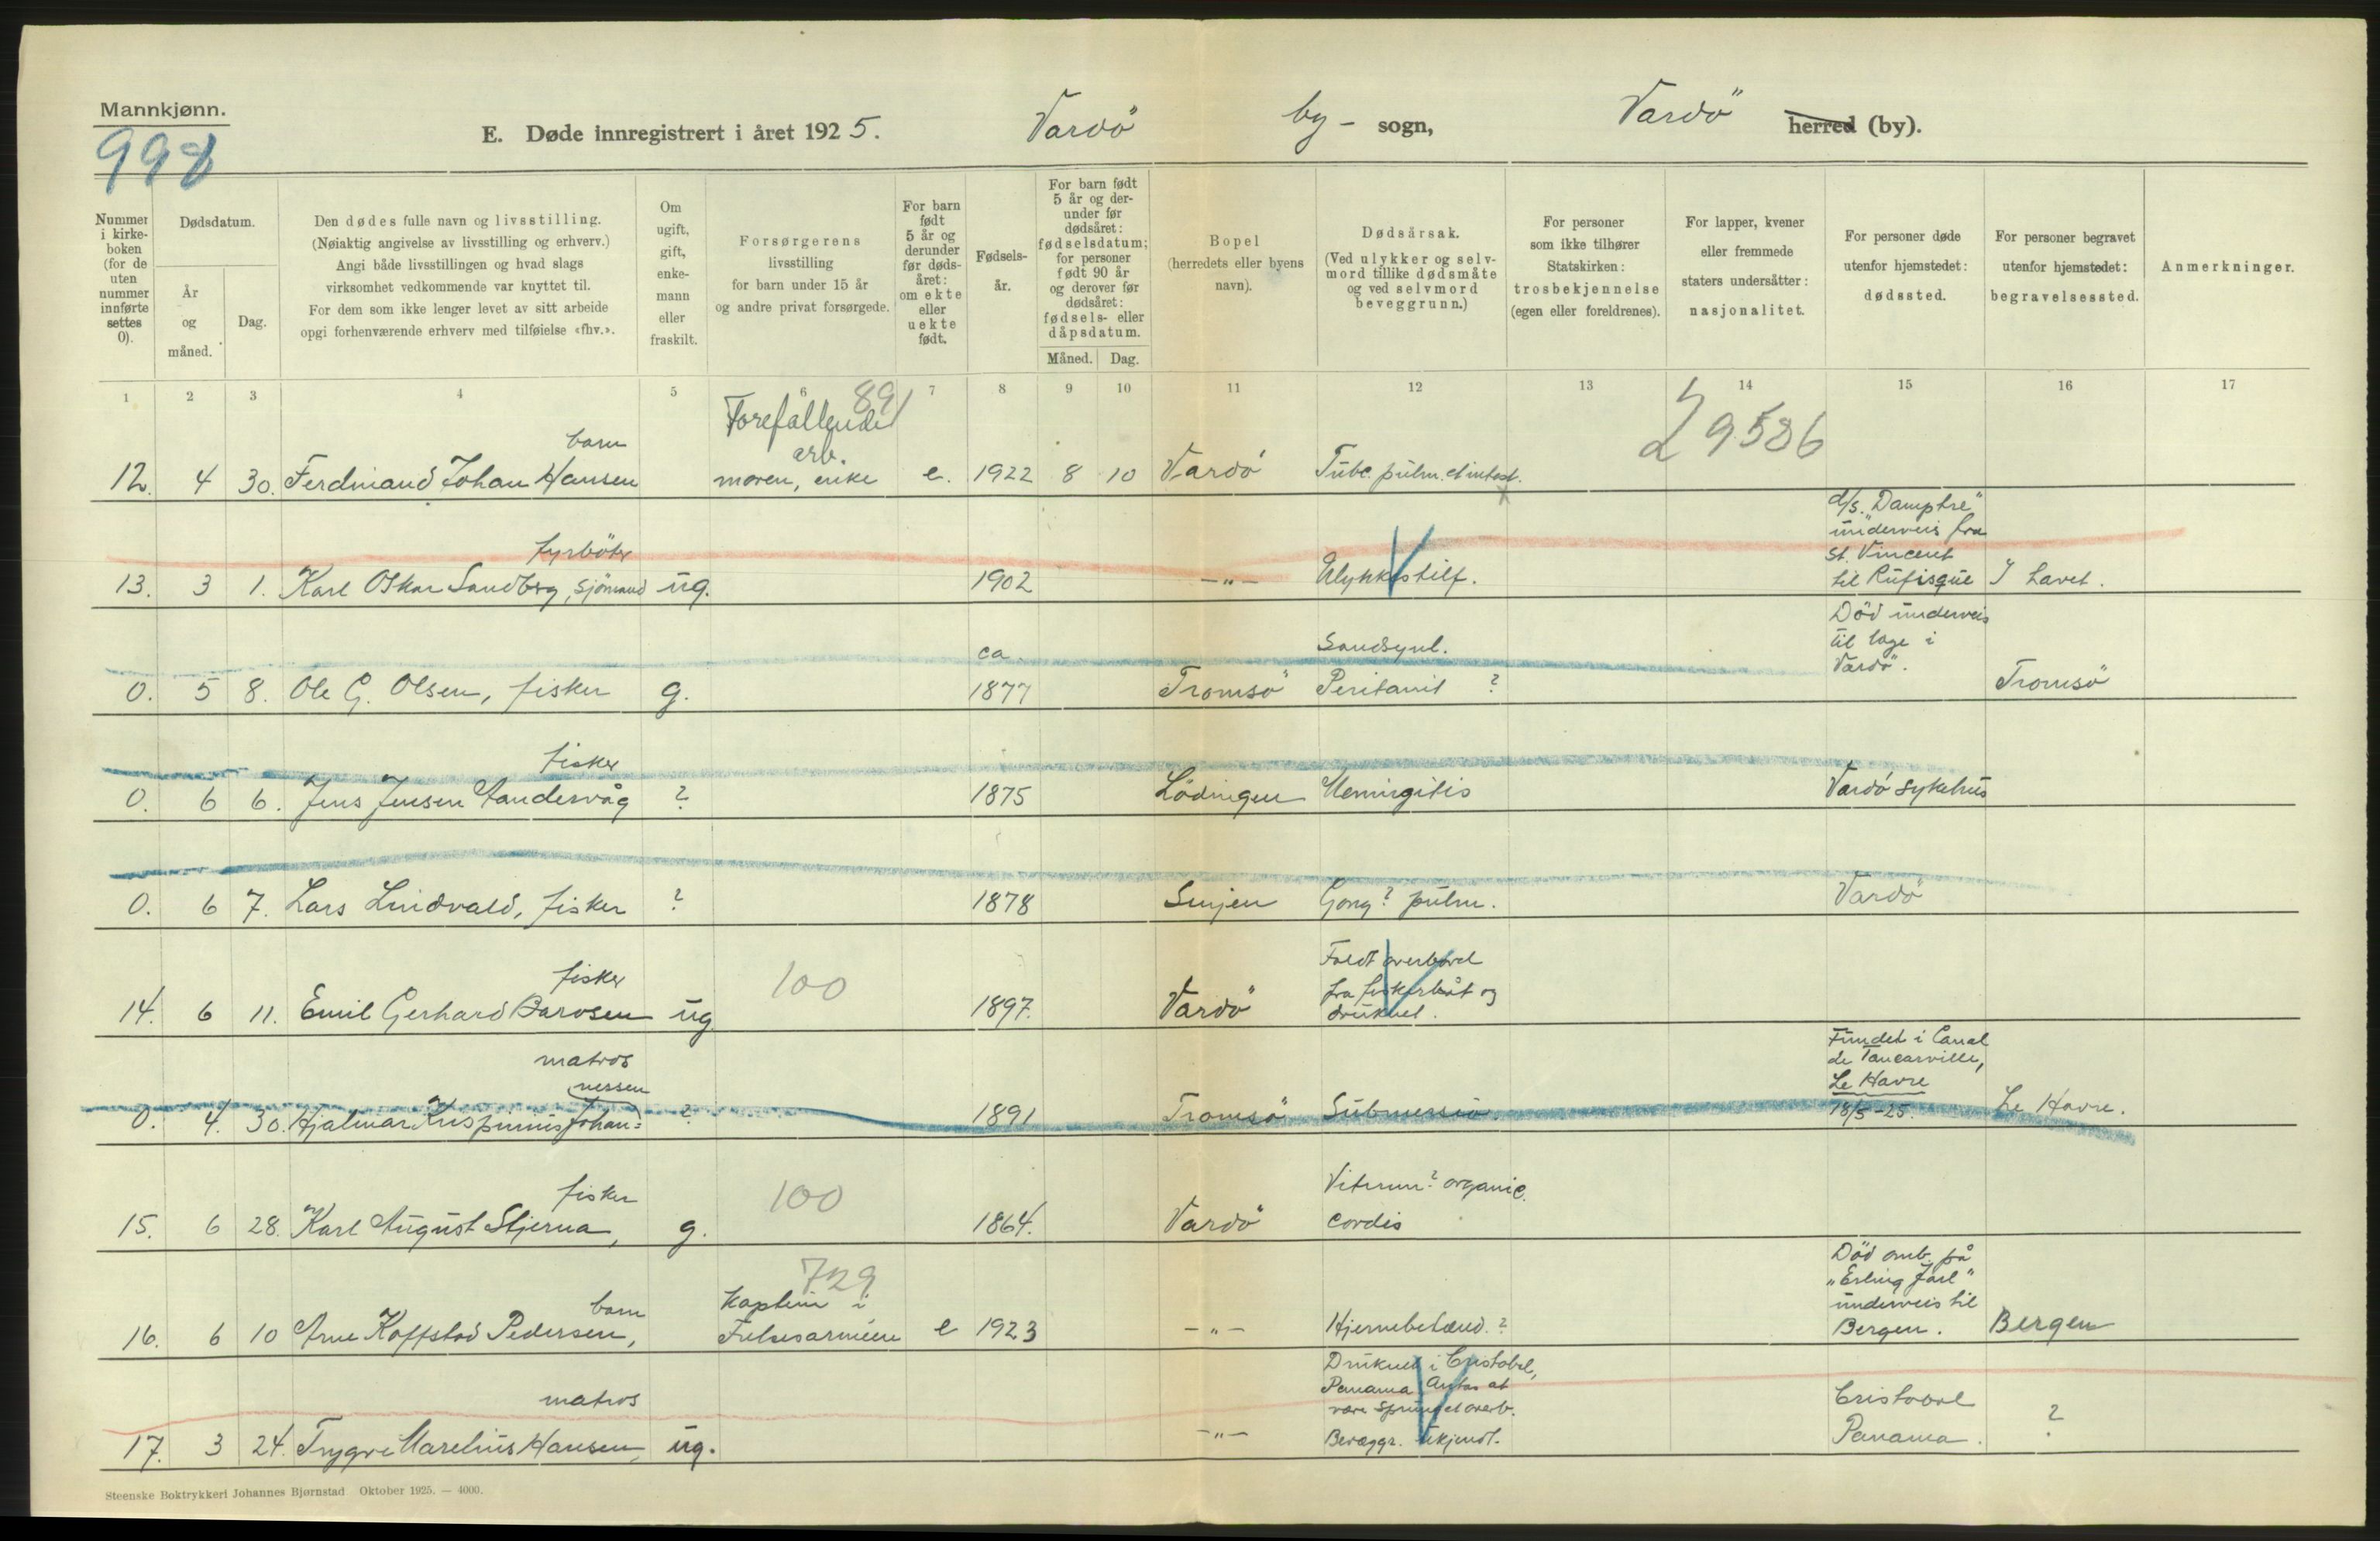 Mannkjønn.
998
E. Døde innregistrert i året 1925. Vardö by- sogn, Vardö herred (by).
Nummer i kirke-boken (for de uten nummer innførte settes 0).
Dødsdatum.
År og måned.
Dag.
Den dødes fulle navn og livsstilling.
(Nøiaktig angivelse av livsstilling og erhverv.)
Angi både livsstillingen og hvad slags
virksomhet vedkommende var knyttet til.
For dem som ikke lenger levet av sitt arbeide
opgi forhenværende erhverv med tilføielse «fhv.».
Om ugift, gift, enke-mann eller fraskilt.
Forsørgerens
livsstilling
for barn under 15 år
og andre privat forsørgede.
For barn født 5 år og derunder før døds-året: om ekte eller uekte født.
Fødsels-år.
For barn født 5 år og der-under før dødsåret: fødselsdatum; for personer født 90 år og derover før dødsåret: fødsels- eller dåpsdatum.
Måned. Dag.
Bopel
(herredets eller byens
navn).
Dødsårsak.
(Ved ulykker og selv-
mord tillike dødsmåte
og ved selvmord
beveggrunn.)
For personer
som ikke tilhører
Statskirken:
trosbekjennelse
(egen eller foreldrenes).
For lapper, kvener
eller fremmede
staters undersåtter:
nasjonalitet.
For personer døde
utenfor hjemstedet:
dødssted.
For personer begravet
utenfor hjemstedet:
begravelsessted.
Anmerkninger.
1 2 3 4 5 6 7 8 9 10 11 12 13 14 15 16 17
891
Forefallende
arb.
29586
barn
12. 4 30. Ferdinand Johan Hansen moren, enke e. 1922 8 10 Vardö Tubc. pulm. et intest.
d/s. "Damptre"
underveis fra
St. Vincent
fyrböter
13. 3 1. Karl Oskar Sandberg, sjömand ug. 1902 -"- Ulykkestilf. til Rufisque I havet.
Död underveis
til lage i
Vardö.
ca. Sandsynl.
0. 5 8. Ole G. Olsen, fisker g. 1877 Tromsö Peritonit ? Tromsö
fisker
0. 6 6. Jens Jensen Sandervåg ? 1875 Lödingen Meningitis Vardö sykehus
0. 6 7. Lars Lindvald, fisker ? 1878 Senjen Gong? pulm. Vardö
fisker 100 Faldt overbord
fra fiskerbåt og
14. 6 11. Emil Gerhard Barosen ug 1897. Vardö druknet.
matros Fundet i Canal
nessen de Tancarville,
Le Havre
0. 4. 30. Hjalmar Krispinus Johan= ? 1891 Tromsö Submersio. 18/5-25. Le Havre.
fisker 100 Vitium? organic.
15. 6 28. Karl August Stjerna, g. 1864. Vardö cordis
729 Död omb. på
"Erling Jarl"
barn Kaptein i underveis til
16. 6 10 Arne Koffstad Pedersen, Frelsesarmeen e 1923 -"- Hjernebetænd. ? Bergen. Bergen
Druknet i Cristobal,
Panama. Antas at
matros være sprunget overb. Cristobal
17. 3 24. Trygve Marelius Hansen, ug. -"- Bevæggr. ukjendt. Panama. ?
Steenske Boktrykkeri Johannes Bjørnstad Oktober 1925. — 4000.